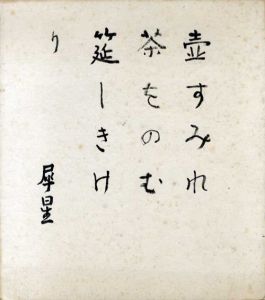 壺すみれ
茶をのむ
筵しきけ
り
犀星